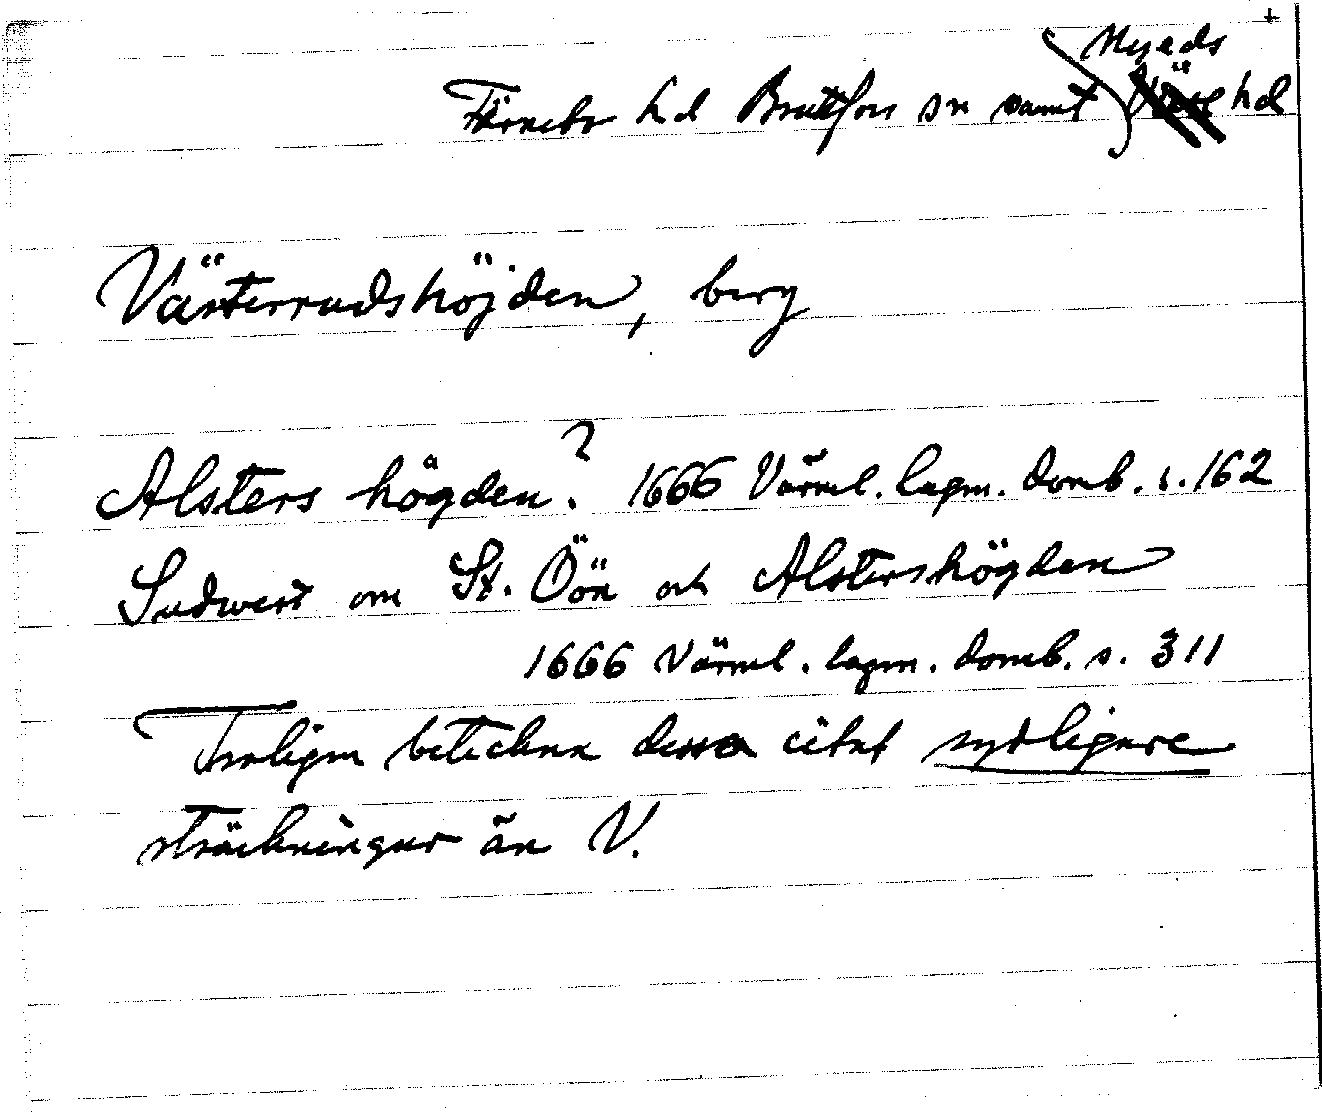 Nyeds
Färnebo hd Brattfors sn samt Väse hd
Västerrudshöjden, berg
Alsters högden? 1666 Värml. lagm. domb. s. 162
Sudwest om St. Öön och Alstershögden
1666 Värml. lagm. domb. s. 311
Troligen beteckna dessa citat sydligare
sträckningar än V.